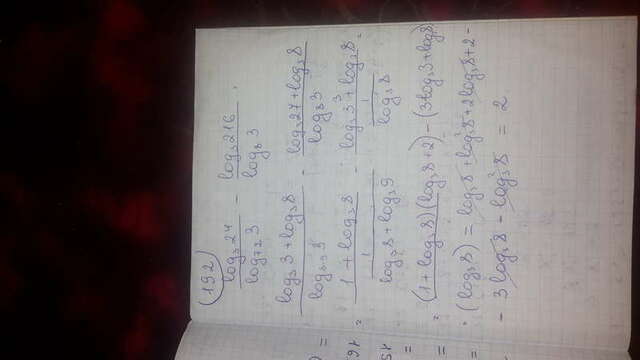 192
log₃24 / log₇₂3 - log₃216 / log₈3 =
(log₃3 + log₃8) / log₇₂3 - (log₃27 + log₃8) / log₈3
= (1 + log₃8) / (1 / (log₃8 + log₃9)) - (log₃3³ + log₃8) / (1 / log₃8) =
= (1 + log₃8)(log₃8 + 2) - (3log₃3 + log₃8)
· (log₃8) = log₃8 + log₃²8 + 2log₃8 + 2 -
- 3log₃8 - log₃²8 = 2.